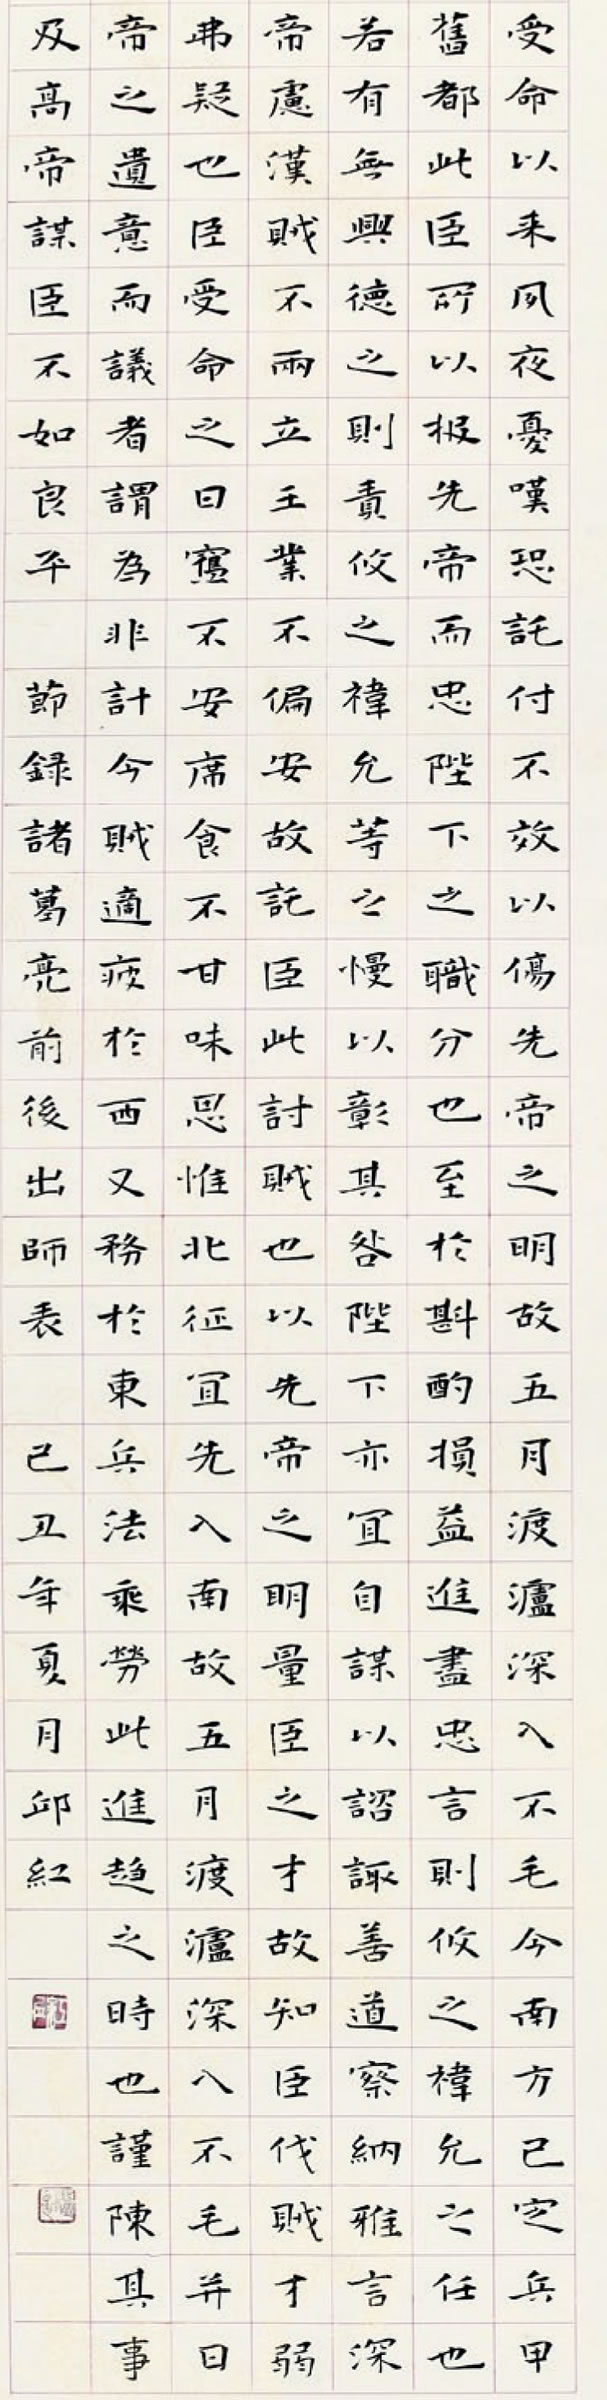 受命以来夙夜憂嘆恐託付不效以傷先帝之明故五月渡瀘深入不毛今南方已定兵甲
舊都此臣所以报先帝而忠陛下之職分也至於斟酌損益進盡忠言則攸之禕允之任也
若有無興德之則責攸之禕允等之慢以彰其咎陛下亦宜自謀以諮諏善道察納雅言深
帝慮漢賊不兩立王業不偏安故託臣此討賊也以先帝之明量臣之才故知臣伐賊才弱
弗疑也臣受命之日寢不安席食不甘味思惟北征宜先入南故五月渡瀘深入不毛并日
帝之遺意而議者謂為非計今賊適疲於西又務於東兵法乘勞此進趋之時也謹陳其事
及高帝謀臣不如良平 節録諸葛亮前後出師表 己丑年夏月邱紅